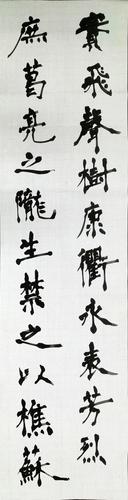 實飛聲樹康衢永表芳烈
庶葛亮之隴生禁之以樵蘇